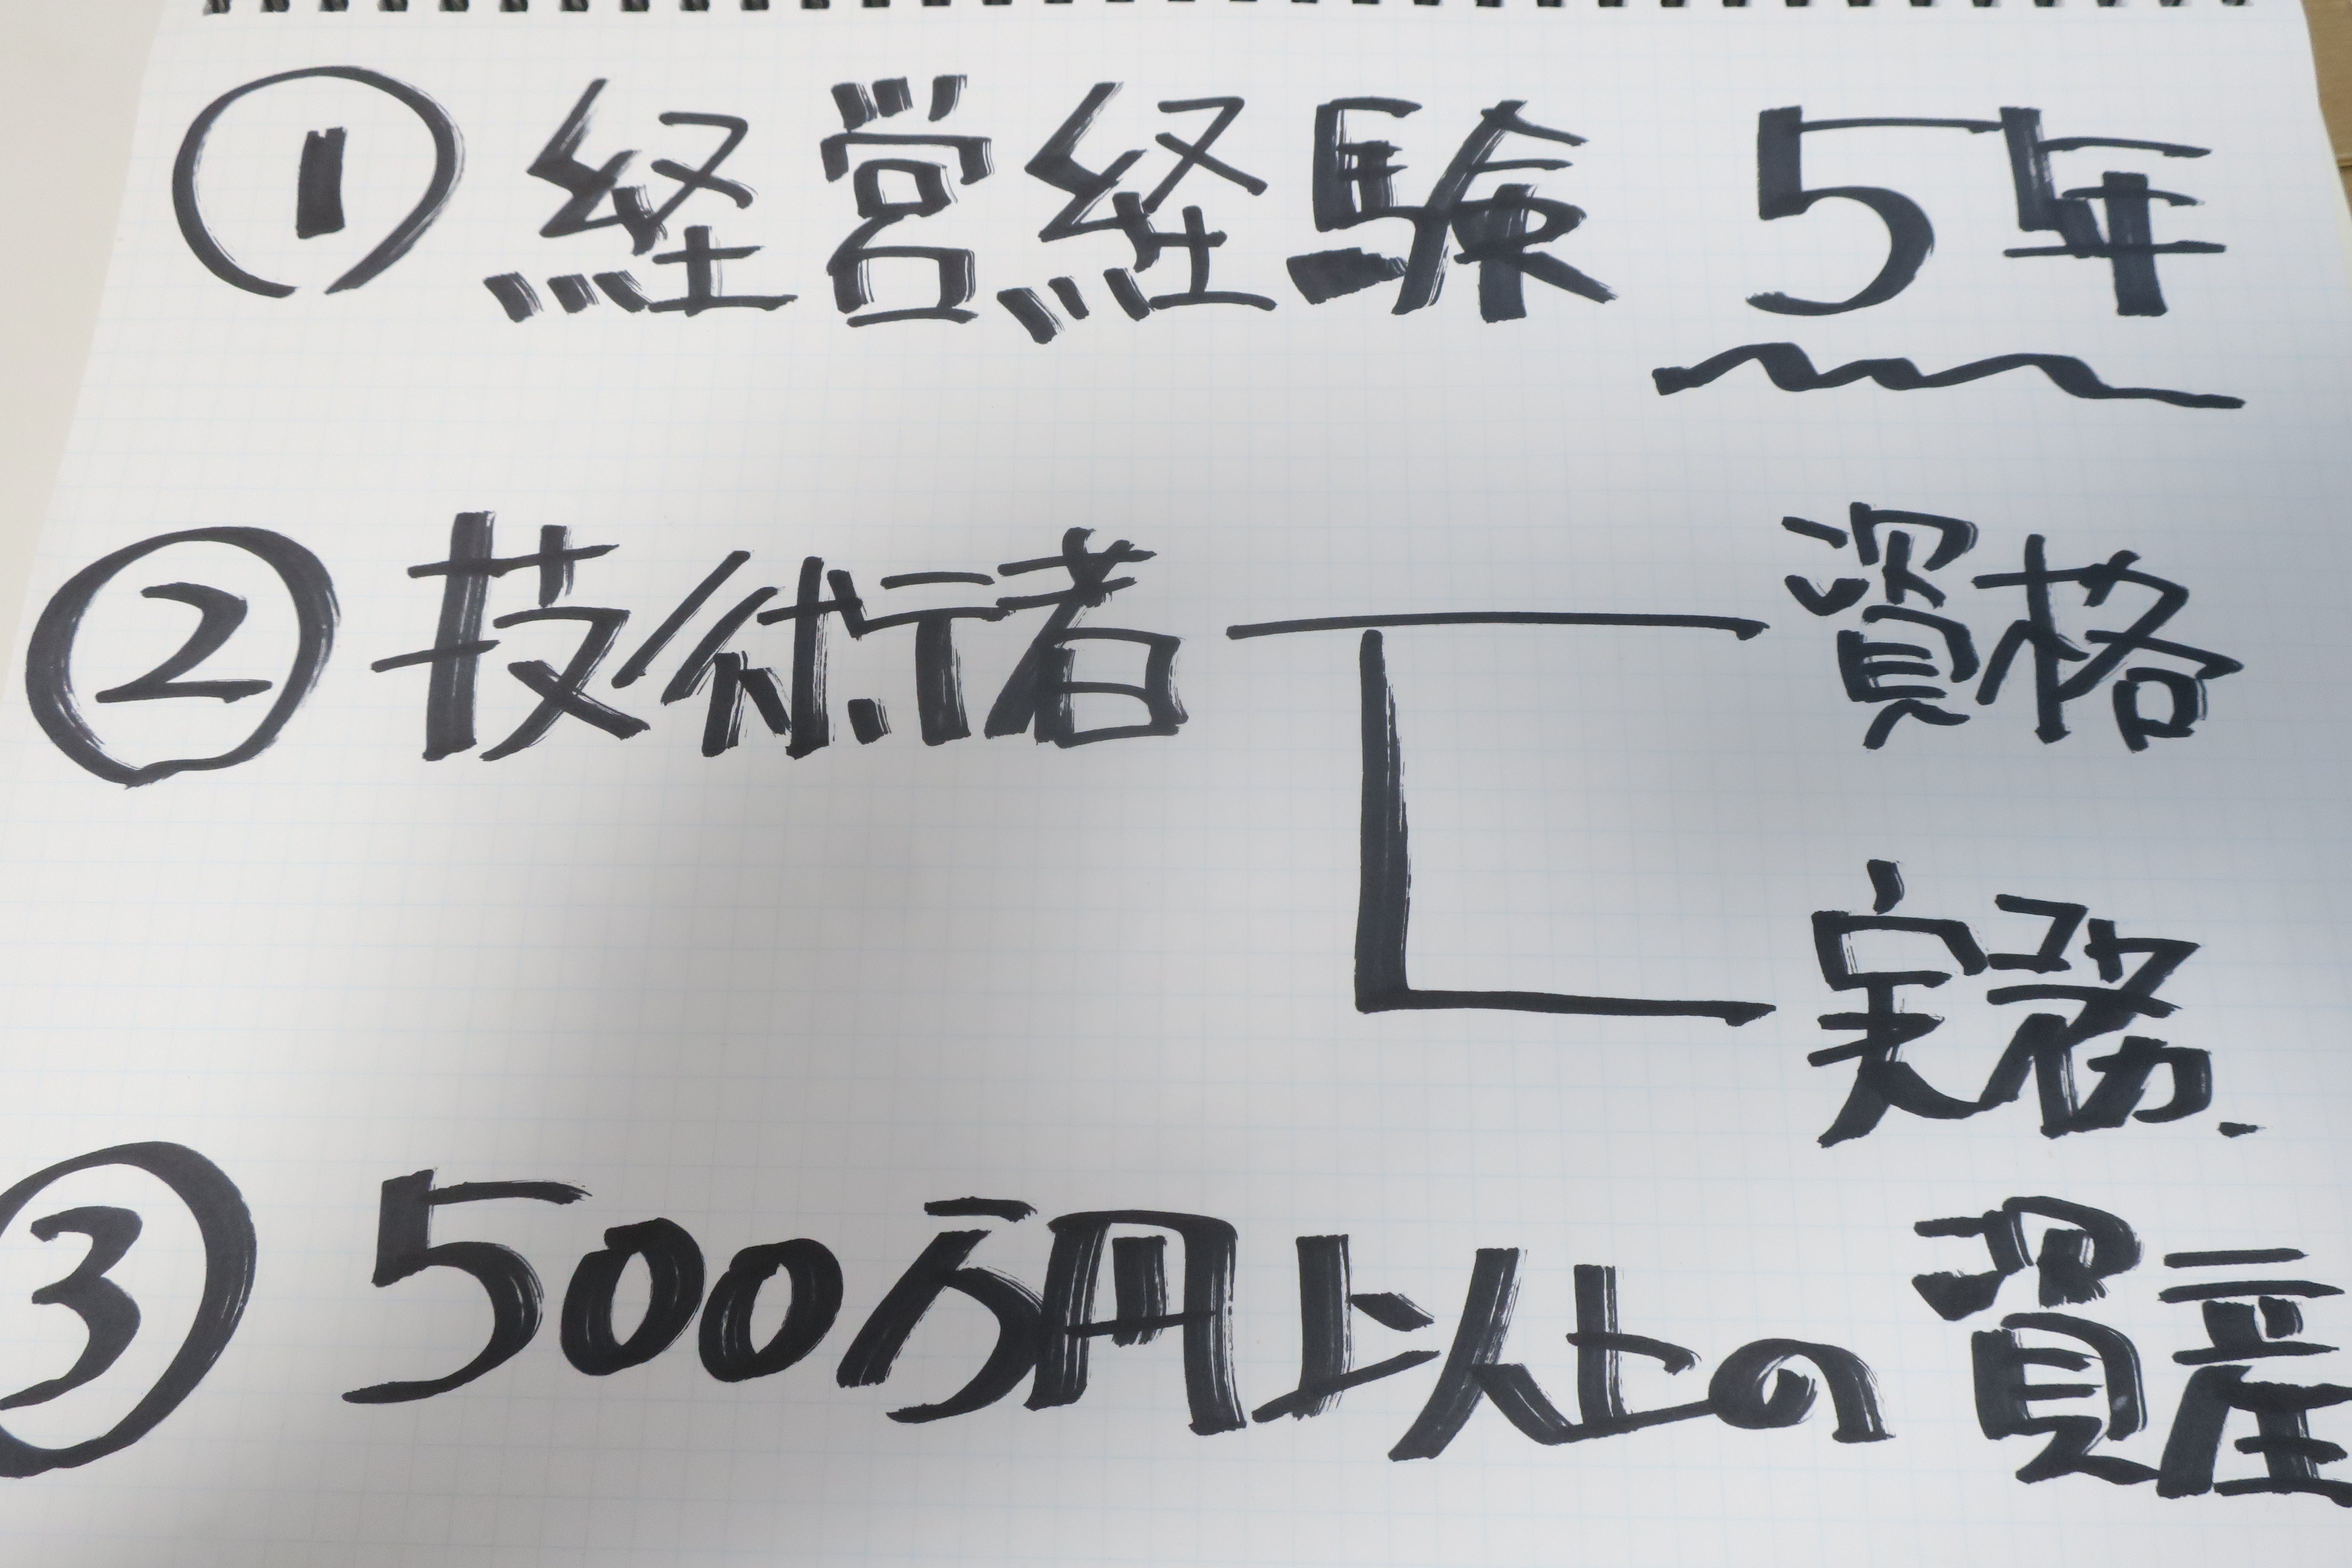 ① 経営経験 5年
② 技術者 資格
実務
③ 500万円以上の資産